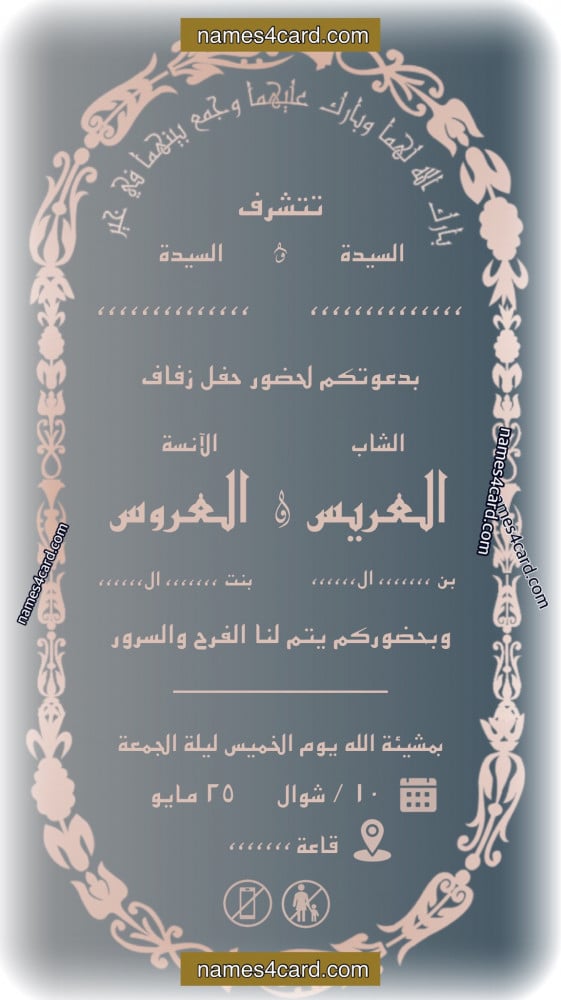 names4card.com
بارك الله لهما وبارك عليهما وجمع بينهما في خير
تتشرف
السيدة و السيدة
،،،،،،،،،،،،،، ،،،،،،،،،،،،،،
بدعوتكم لحضور حفل زفاف
الشاب الآنسة
العريس و العروس
بن ،،،،،،، ال،،،،،، بنت ،،،،،،، ال،،،،،،
وبحضوركم يتم لنا الفرح والسرور
بمشيئة الله يوم الخميس ليلة الجمعة
١٠ / شوال ٢٥ مايو
قاعة ،،،،،،،
names4card.com
names4card.com
names4card.com